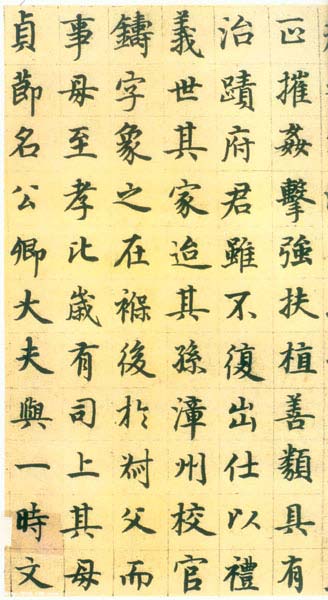 正摧姦擊強扶植善類具有
治蹟府君雖不復出仕以禮
義世其家迨其孫漳州校官
鑄字象之在褓後於叔父而
事母至孝比歲有司上其母
貞節名公卿大夫與一時文